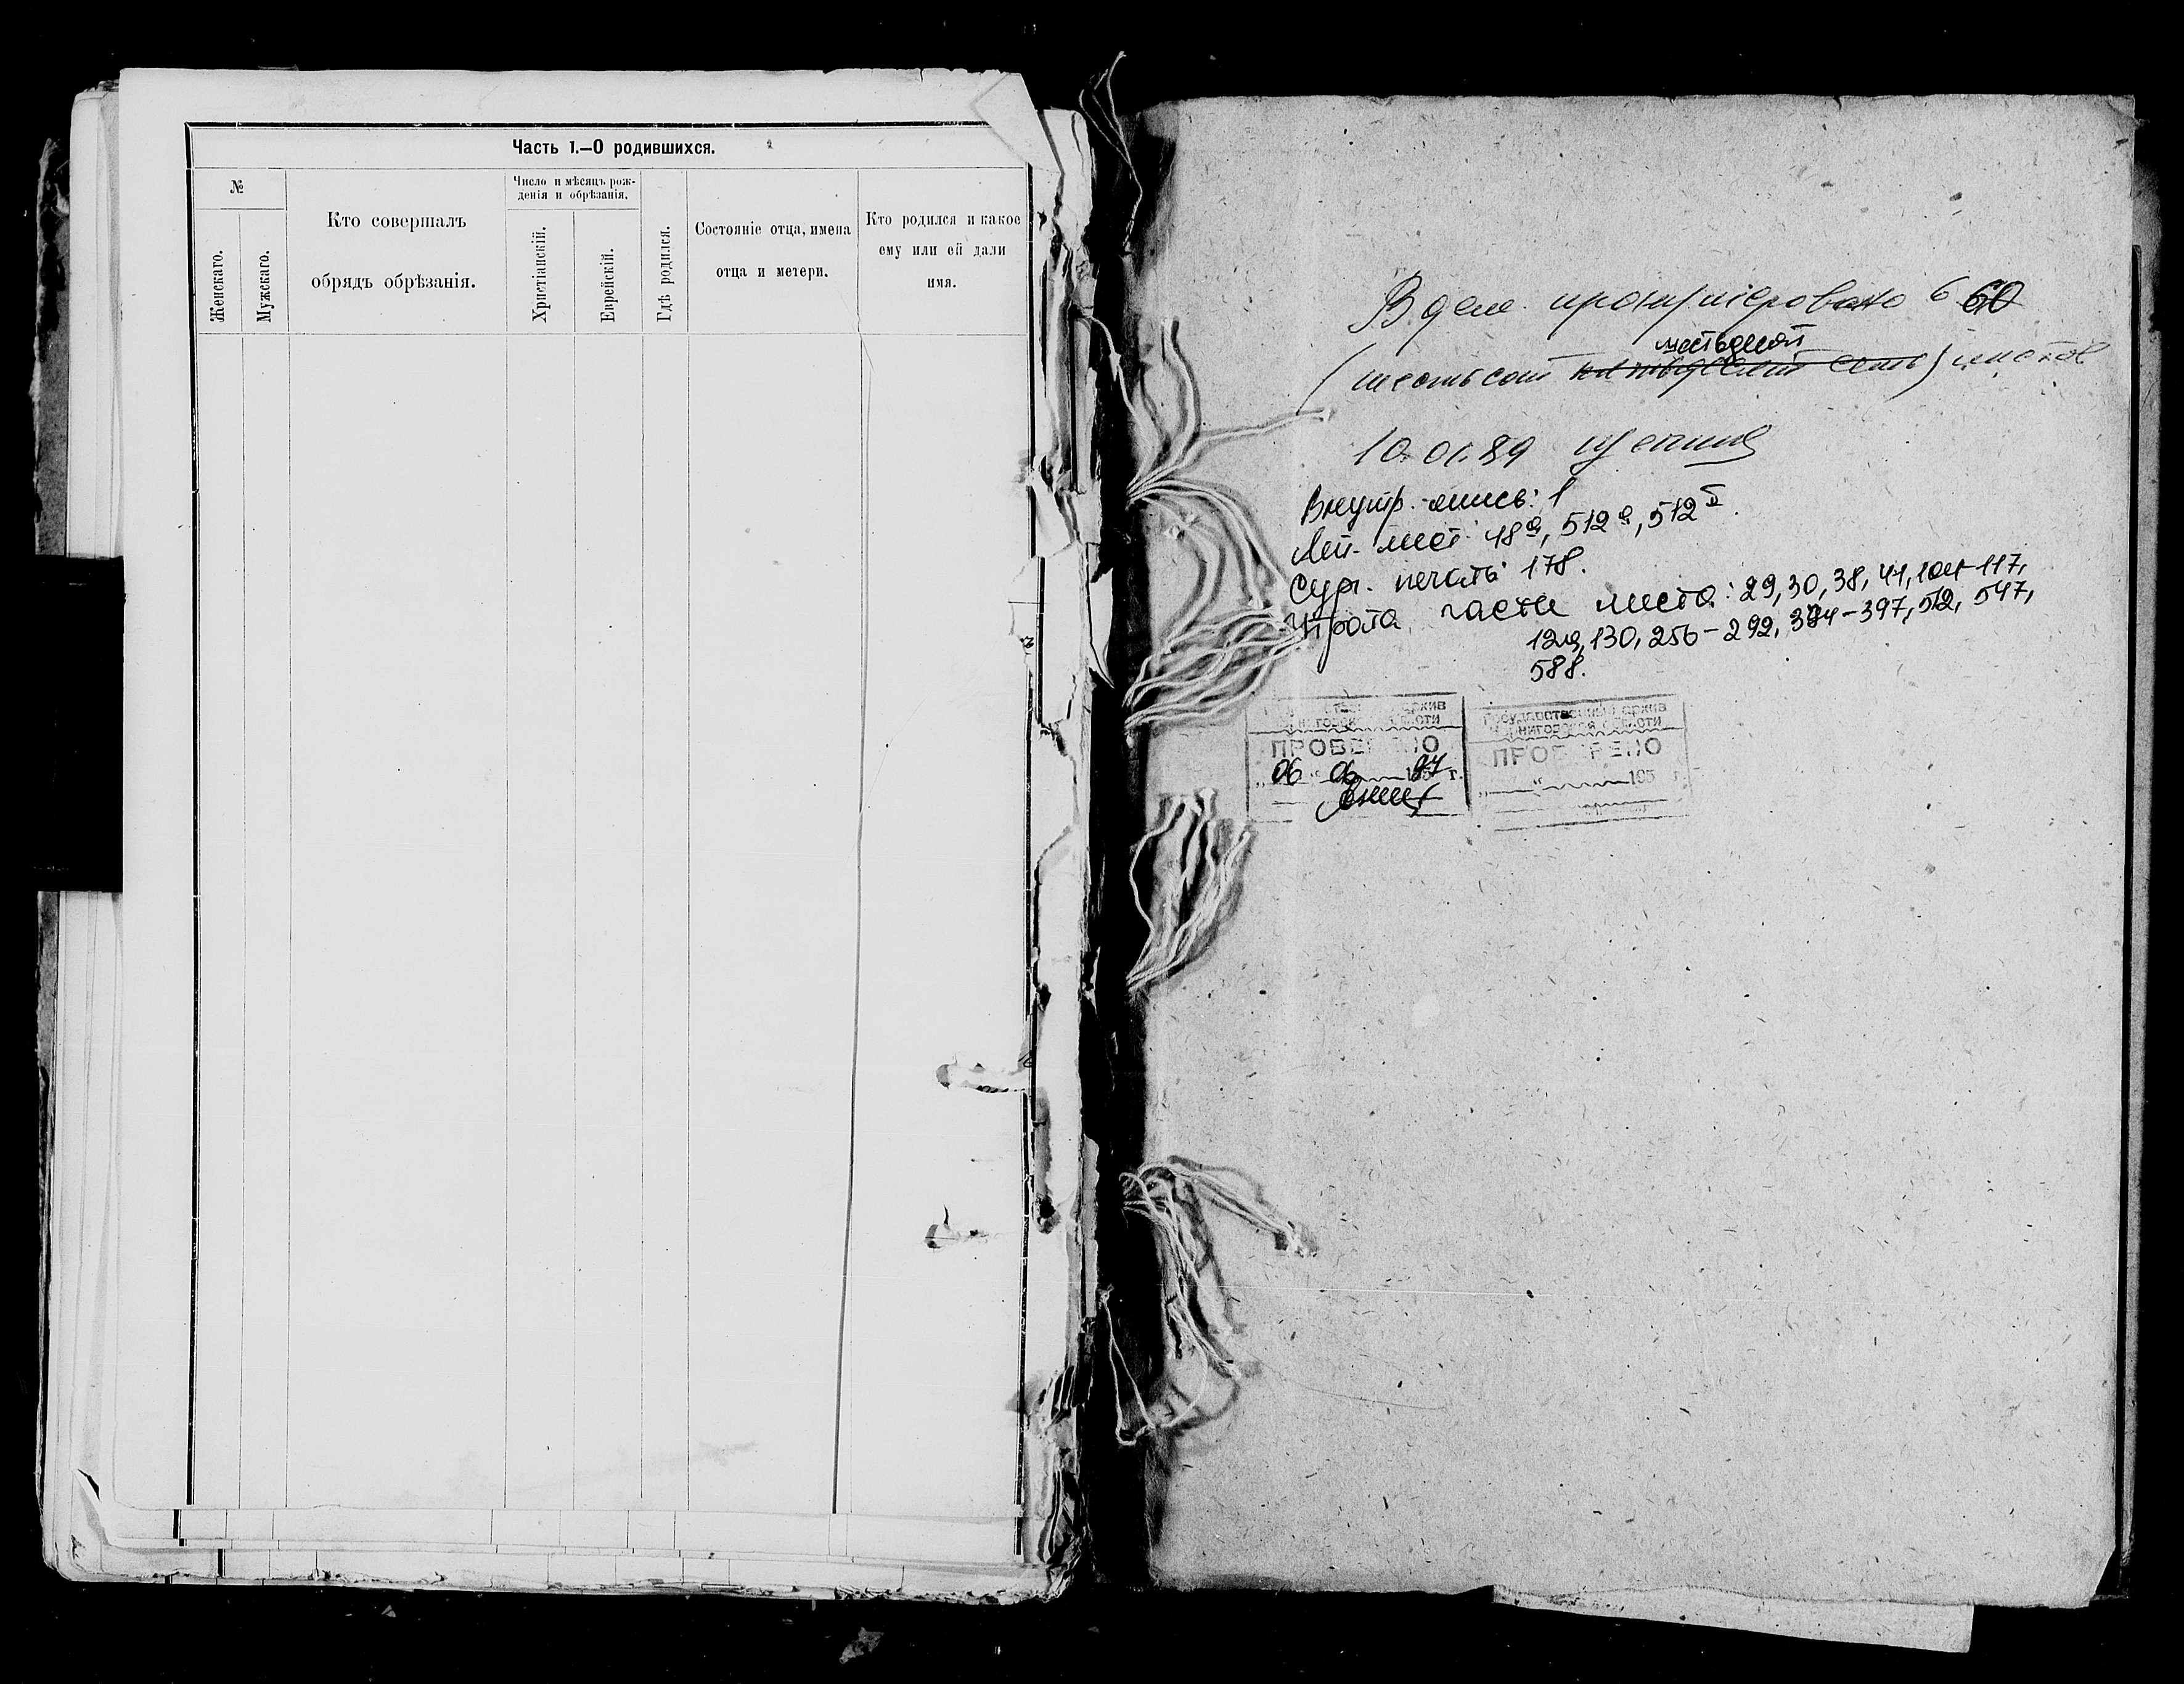 Часть 1.—О родившихся.
№
Женскаго.
Мужскаго.
Кто совершалъ
обрядъ обрѣзанія.
Число и мѣсяцъ рож-
денія и обрѣзанія.
Христіанскій.
Еврейскій.
Гдѣ родился.
Состояніе отца, имена
отца и метери.
Кто родился и какое
ему или ей дали
имя.
В деле пронумеровано 660
шестьдесят
(шестьсот пятьдесят семь) листов
10.01.89
Внутр. опись: 1
Лит. лист 48а, 512а, 512б.
Сург. печать 178.
Утрата части листа: 29, 30, 38, 41, 104-117,
129, 130, 256-292, 394-397, 512, 547,
588.
архив
области
ПРОВЕРЕНО
06 06 1994 г.
Государственный архив
Черниговской области
ПРОВЕРЕНО
„ “ 195 г.